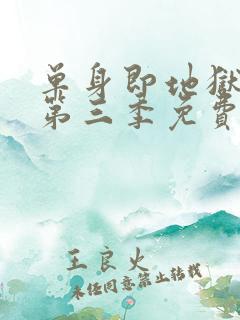 单身即地獄
第三季免費
王良火
未经同意禁止转载